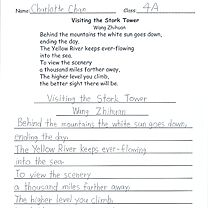 Name: Charlotte Chan Class: 4A
Visiting the Stork Tower
Wang Zhihuan
Behind the mountains the white sun goes down,
ending the day.
The Yellow River keeps ever-flowing
into the sea.
To view the scenery
a thousand miles farther away,
The higher level you climb,
the better sight there will be.
Visiting the Stork Tower
Wang Zhihuan
Behind the mountains the white sun goes down,
ending the day.
The Yellow River keeps ever-flowing
into the sea.
To view the scenery
a thousand miles farther away.
The higher level you climb,